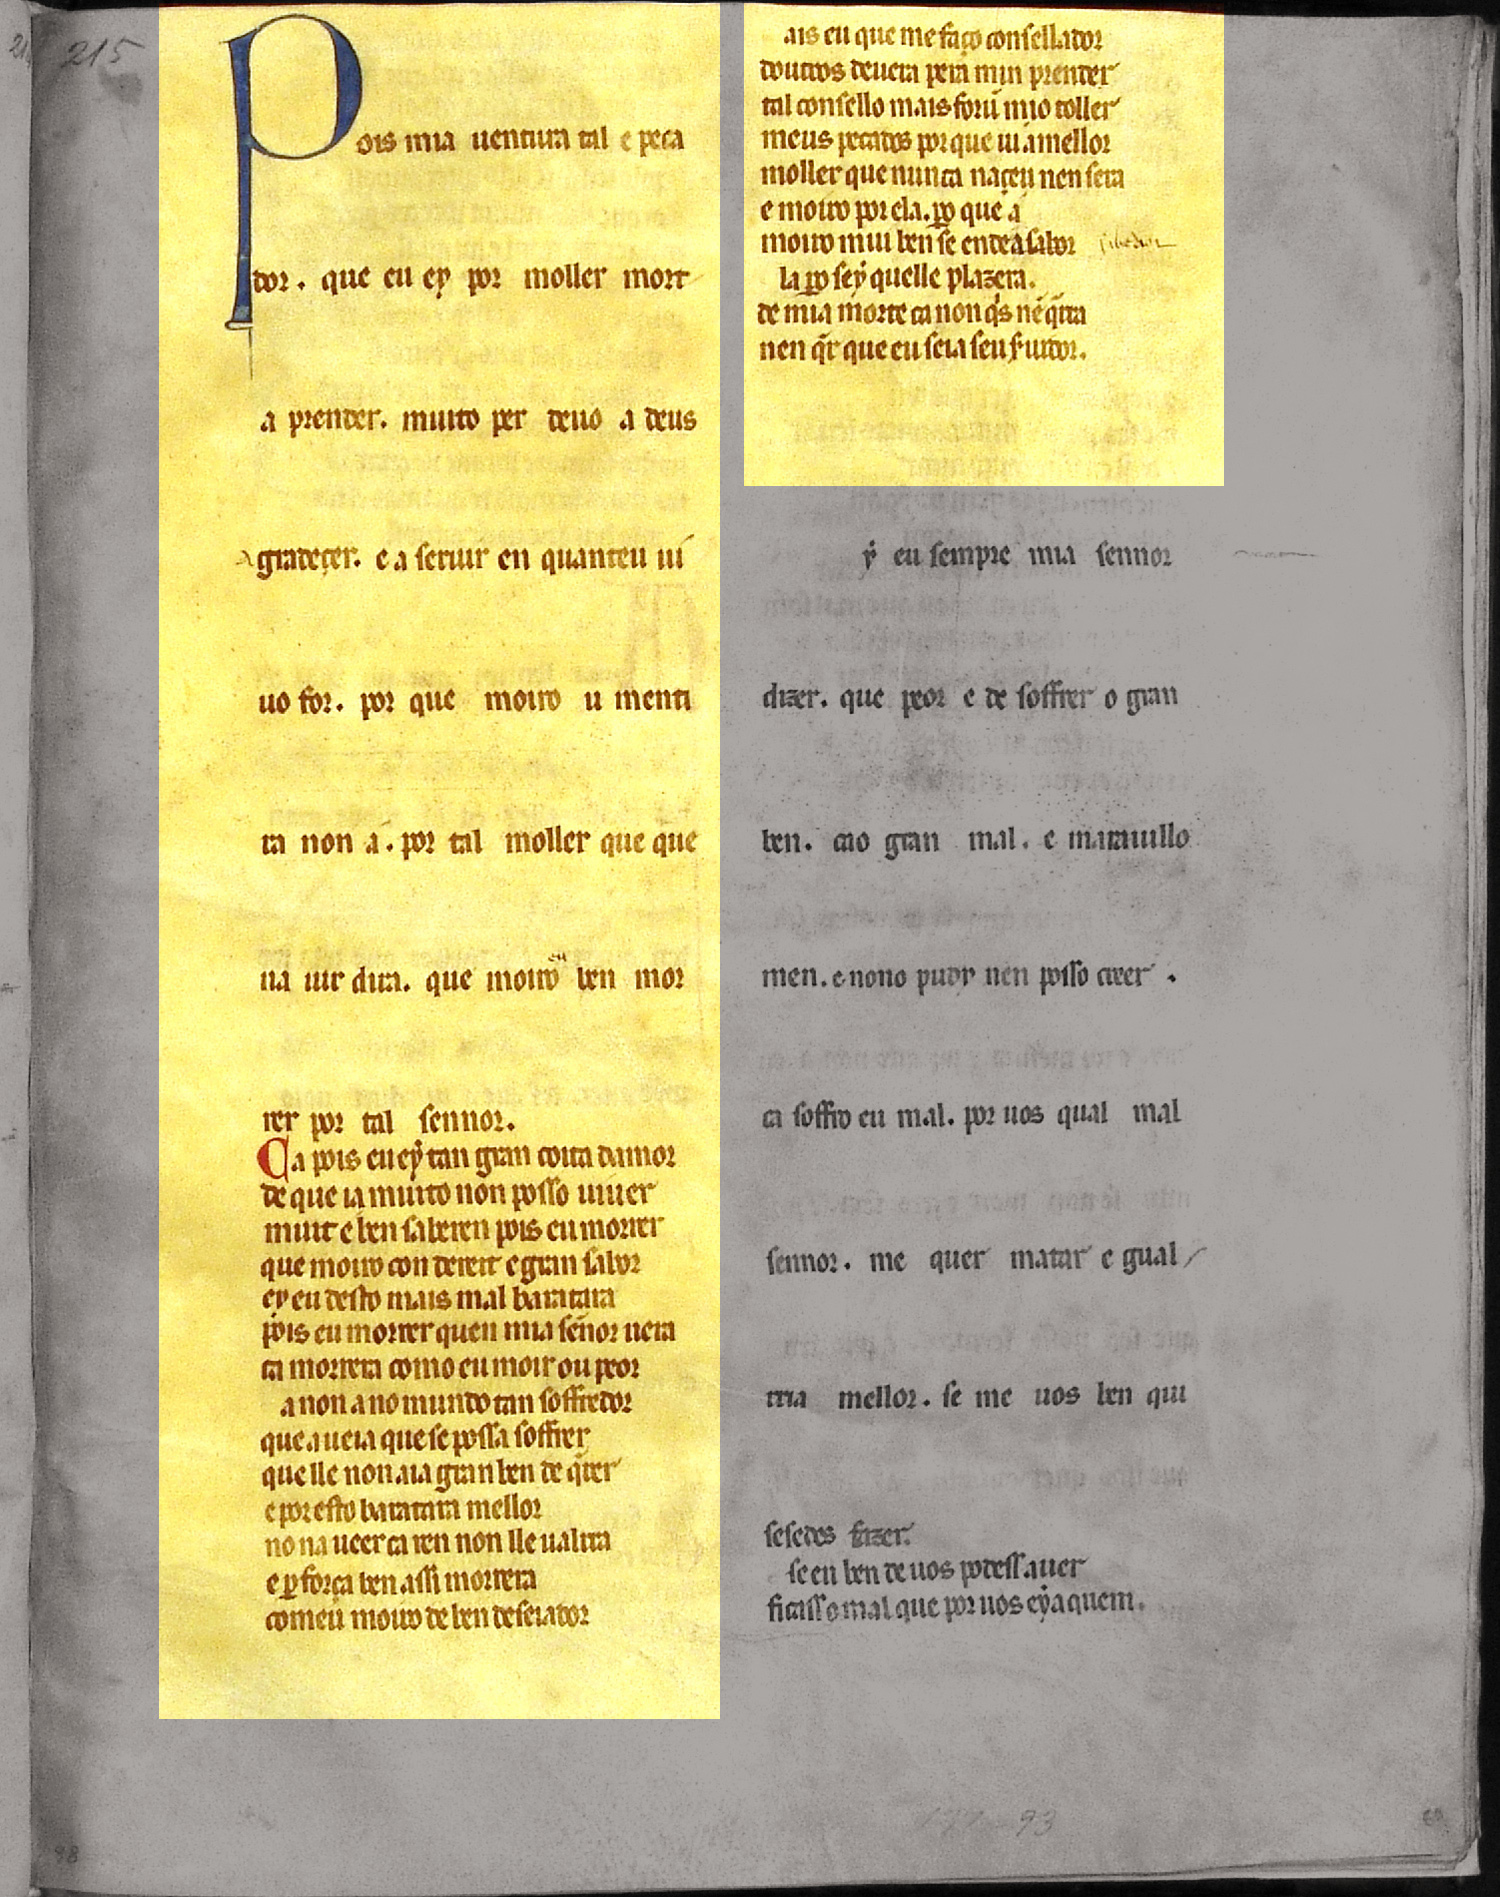 215
Pois mia uentura tal e peca
dor. que eu ey por moller mort
a prender. muito per deuo a deus
gradeçer. e a seruir en quanteu ui
uo for. por que moiro u menti
ra non a. por tal moller que que
na uir dira. que moiro eu ben mor
rer por tal sennor.
Ca pois eu ey tan gran coita damor
de que ia muito non posso uiuer
muit e ben saberen pois eu morrer
que moiro con dereit e gran sabor
ey eu desto mais mal baratara
pois eu morrer quen mia señor uera
ca morrera como eu moir ou peor
a non a no mundo tan soffredor
que a ueia que se possa soffrer
que lle non aia gran ben de q̄rer
e por esto baratara mellor
no na ueer ca ren non lle ualrra
e ꝑ força ben assi morrera
comeu moiro de ben deseiador
ais eu que me faço consellador
doutros deuera pera min prender
tal consello mais forũ mio toller
meus pecados por que ui a mellor
moller que nunca naçeu nen sera
e moiro por ela. ꝑo que a
moiro mui ben se ende a sabor
la ꝑo sey quelle plazera.
de mia morte ca non q̇s nē q̇rra
nen q̄r que eu seia seu ẜuidor.
ẏ eu sempre mia sennor
dizer. que peor e de soffrer o gran
ben. cao gran mal. e marauillo
men. e nono pudy nen posso creer.
ca soffro eu mal. por uos qual mal
sennor. me quer matar e gual
rria mellor. se me uos ben qui
sesedes fazer.
se eu ben de uos podess auer
ficasso mal que por uos ey a quem.